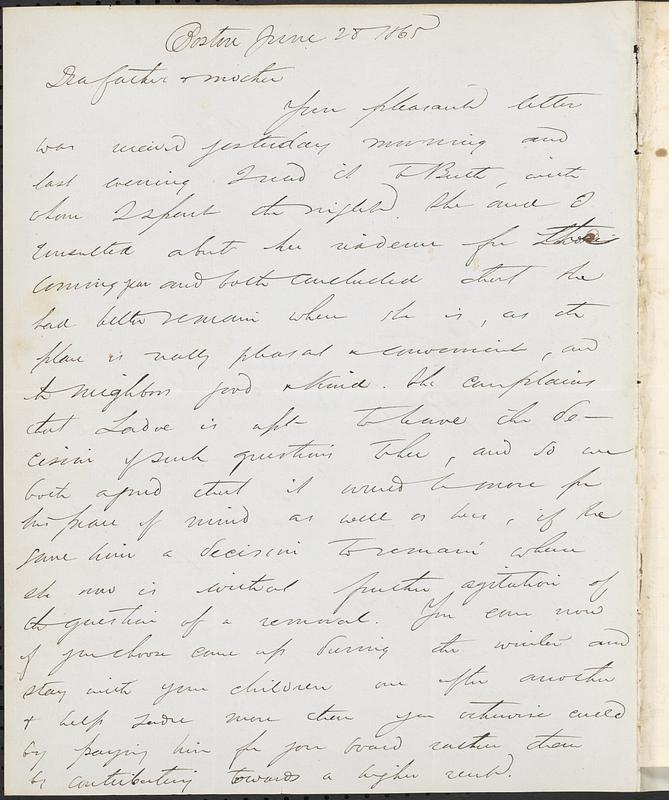 Boston June 28 1865
Dear father & mother
Your pleasant letter
was received yesterday morning and
last evening I read it to Beth, with
whom I spent the night. She and I
consulted about her residence for
coming year and both concluded that she
had better remain where she is, as the
place is really pleasant & convenient, and
the neighbors good & kind. She complains
that is apt to leave the de-
cision of such questions to her, and so we
both agreed that it would be more for
his peace of mind as well as hers, if she
gave him a decision to remain where
she now is without further agitation of
the question of a removal. You can now
if you choose come up during the winter and
stay with your children one after another
& help more than you otherwise could
by paying him for your board rather than
by contributing towards a higher rent.